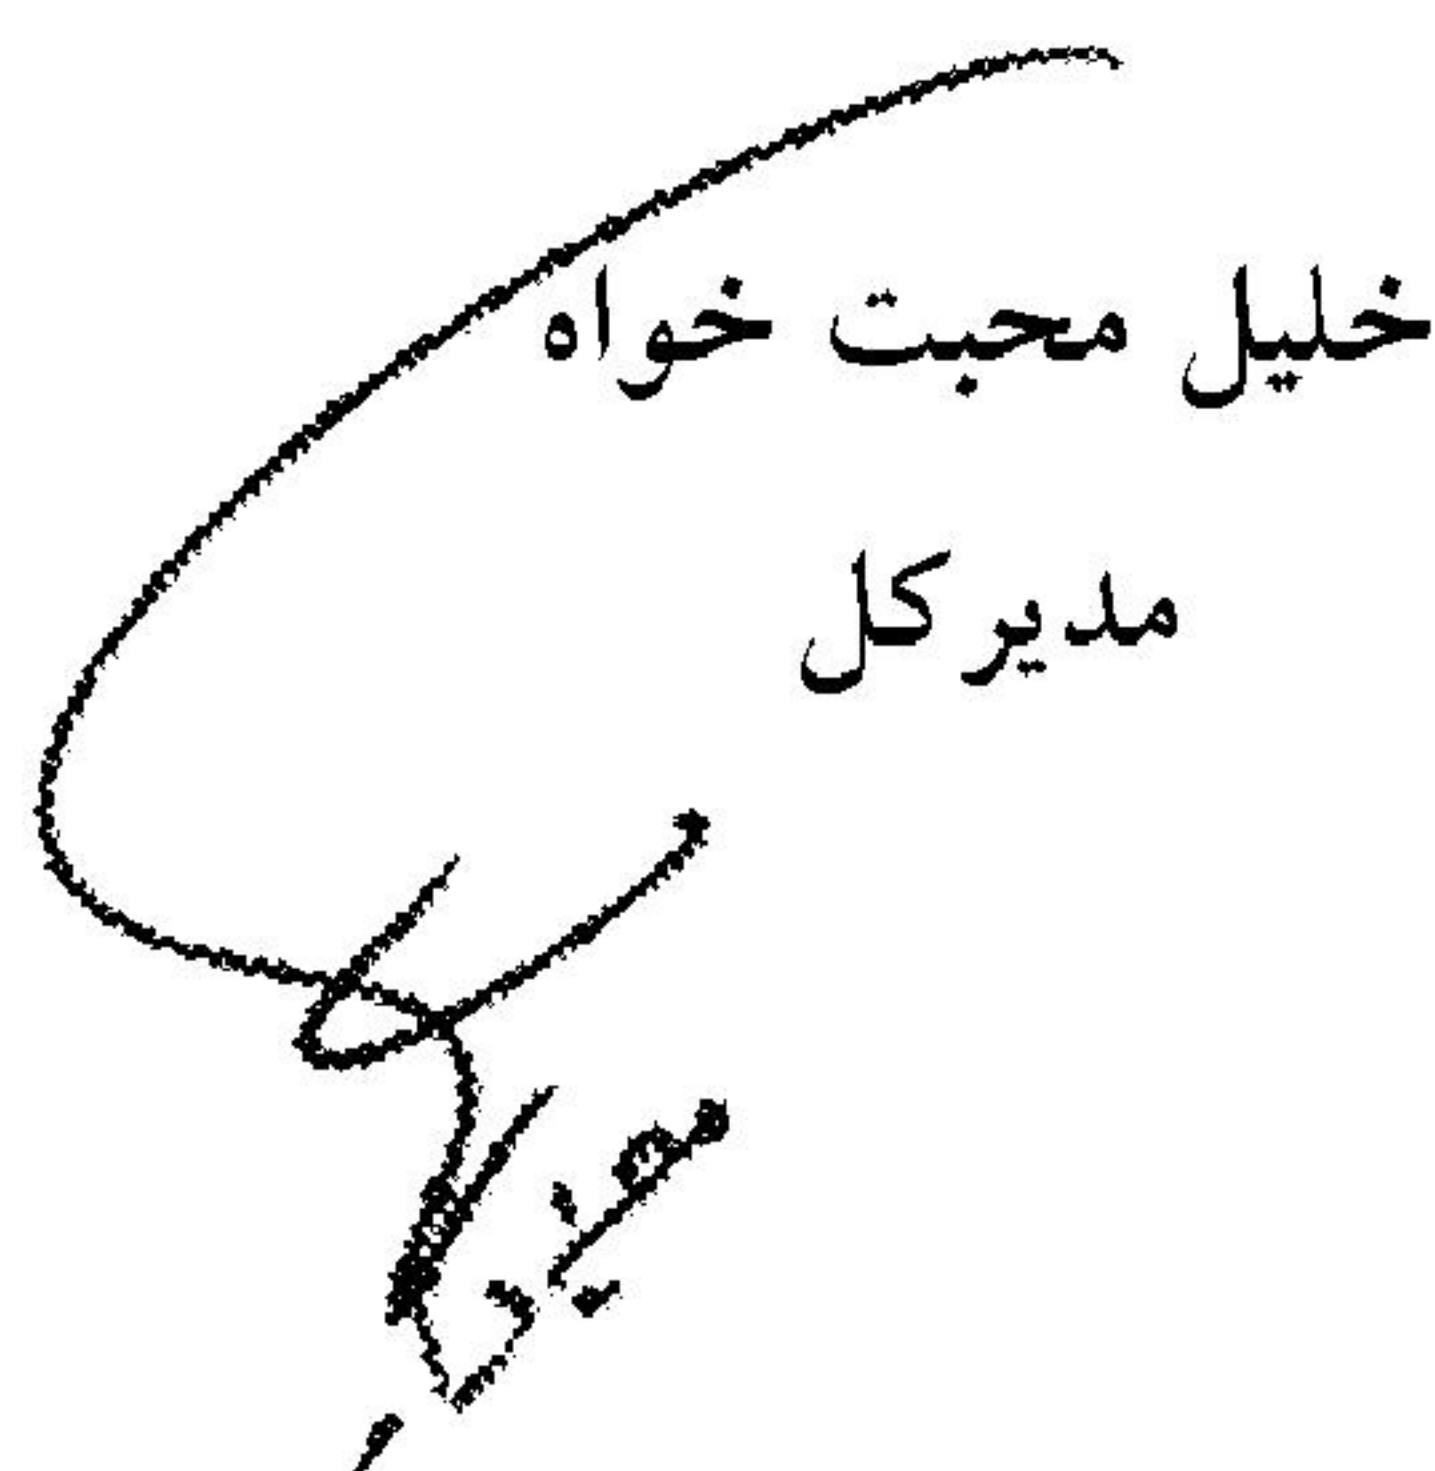 خلیل محبت خواه
مدیر کل